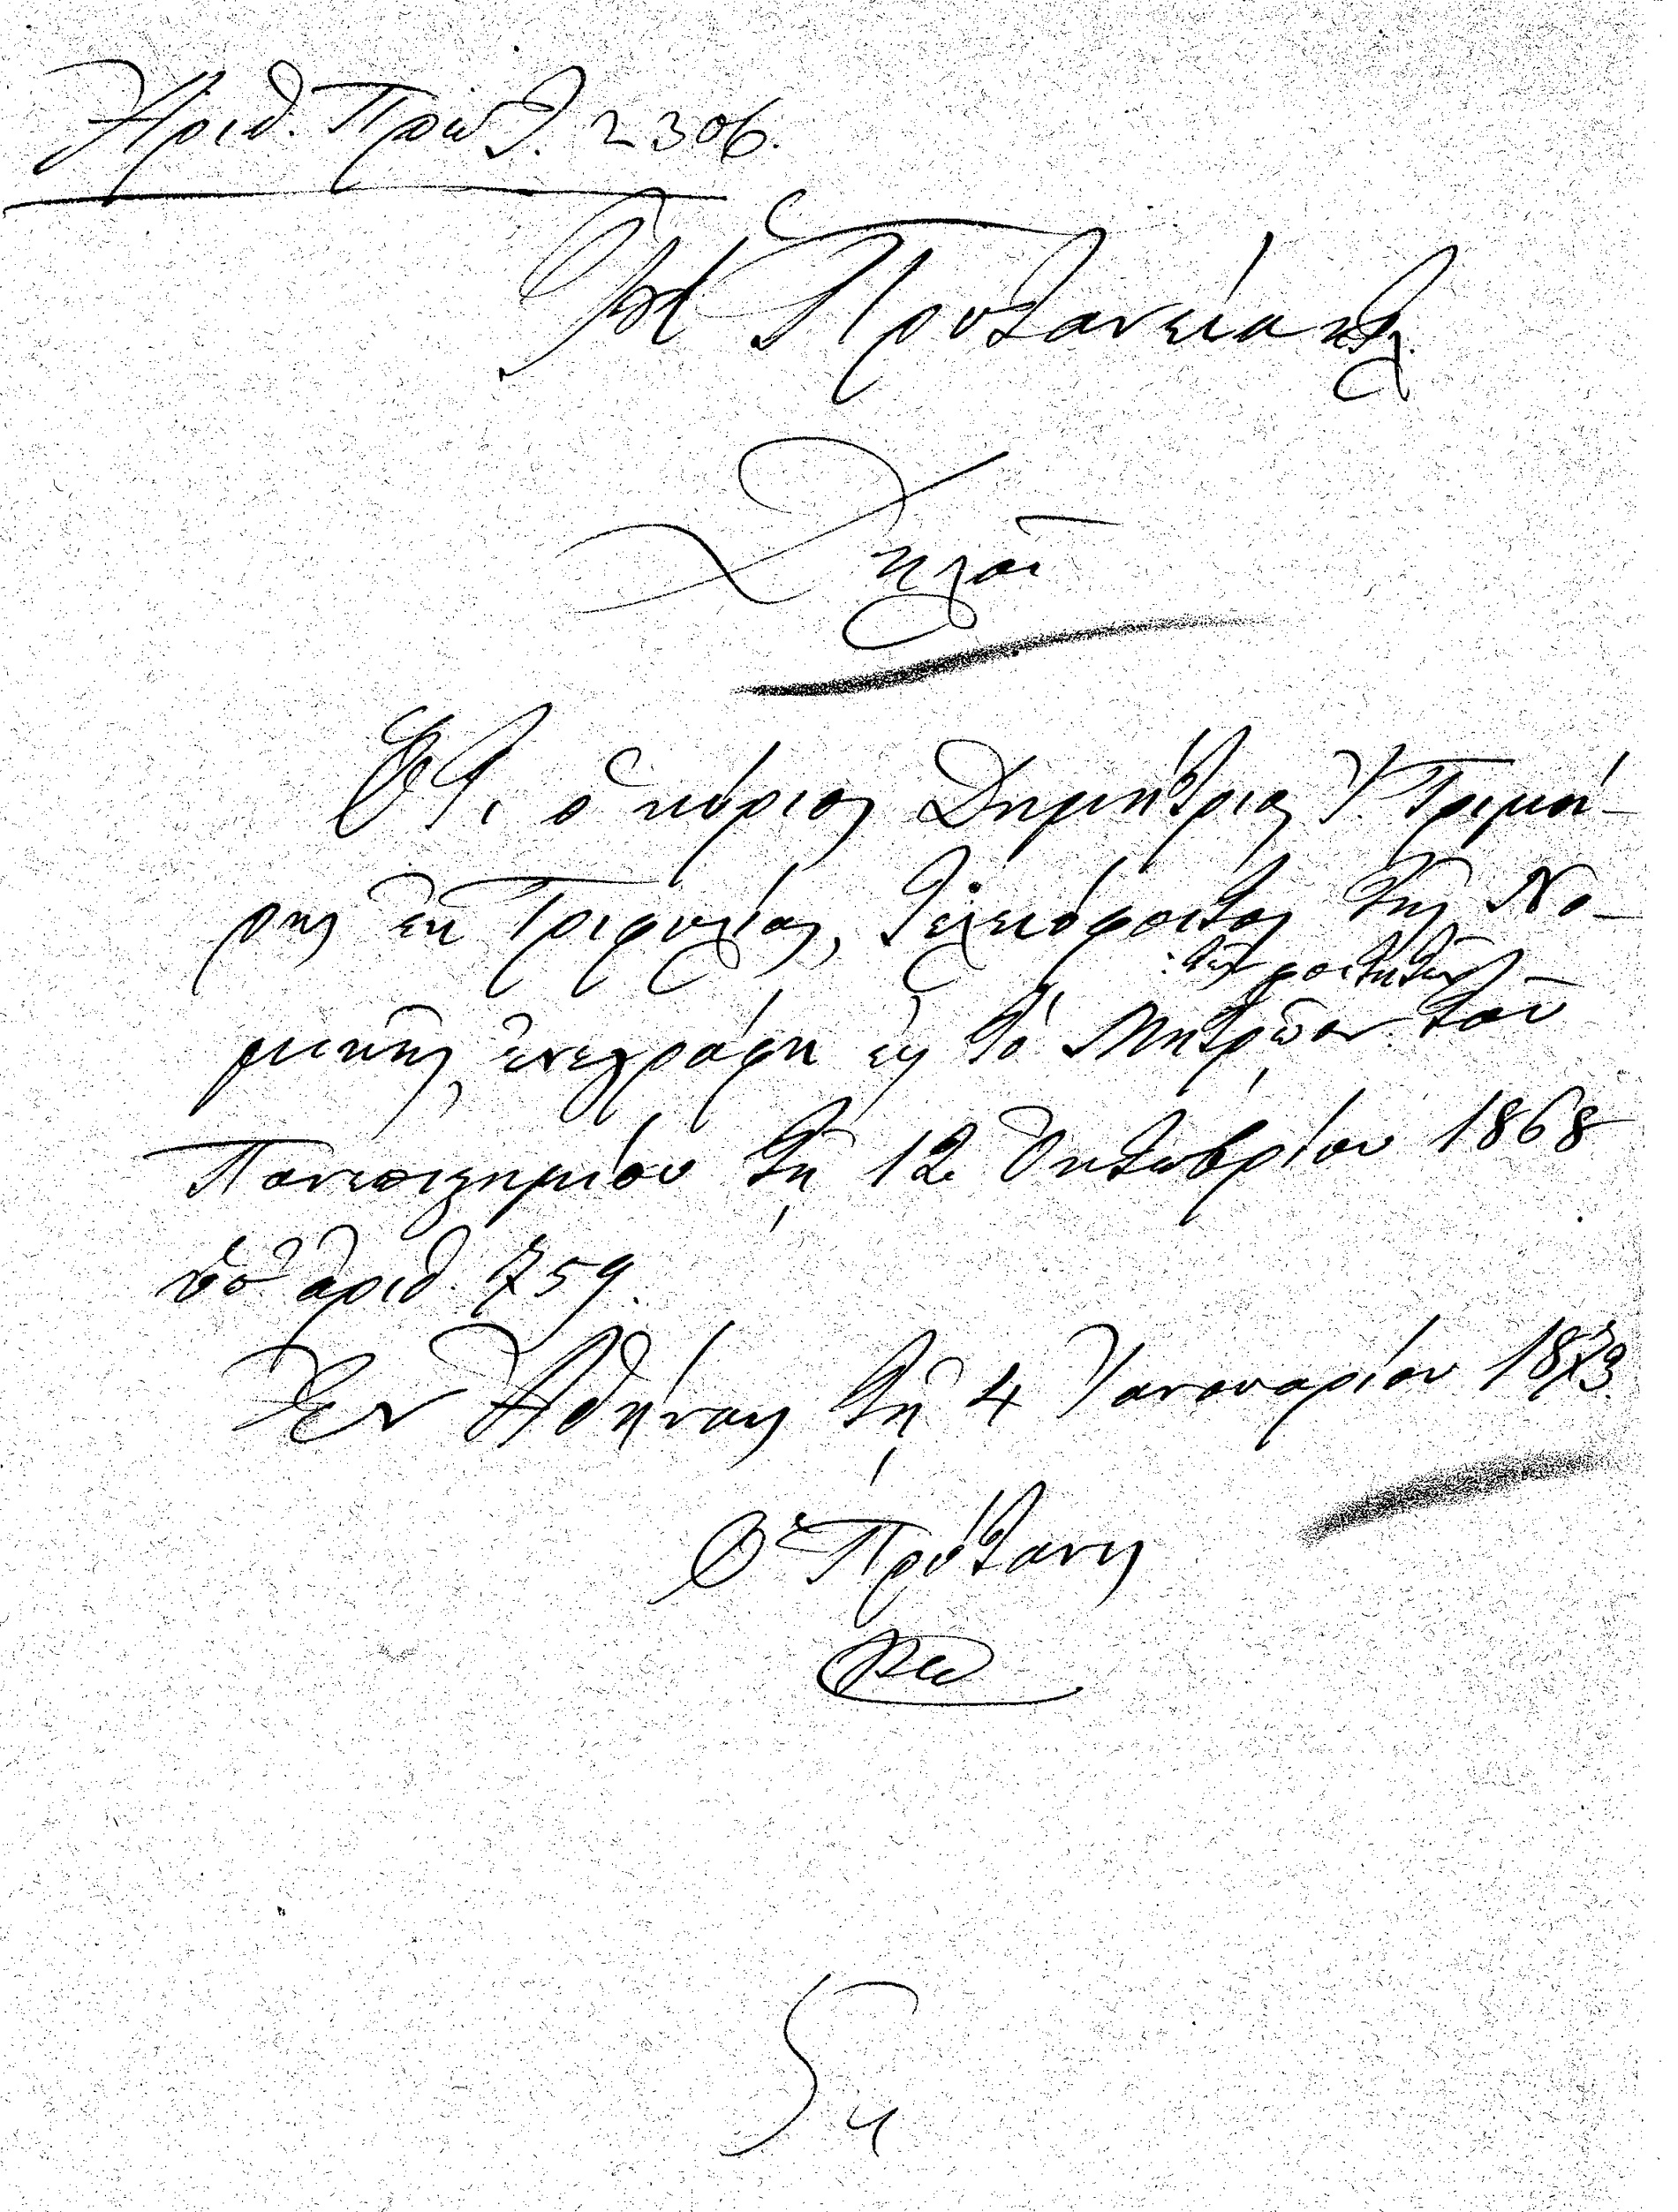 Ἀριθ. Πρωτ. 2306.
Ἡ Πρυτανεία κτλ.
Δηλοῖ
Ὅτι ὁ κύριος Δημήτριος Ι. Τριμπό-
ρης ἐκ Τριφυλίας, τελειόφοιτος τῆς Νο-
μικῆς, ἐνεγράφη εἰς τὸ Μητρῷον τοῦ
τῶν φοιτητῶν
Πανεπιστημίου τῇ 12 Ὀκτωβρίου 1868
ὑπ' ἀριθ. 759.
Ἐν Ἀθήναις τῇ 4 Ἰανουαρίου 1873.
Ὁ Πρύτανις